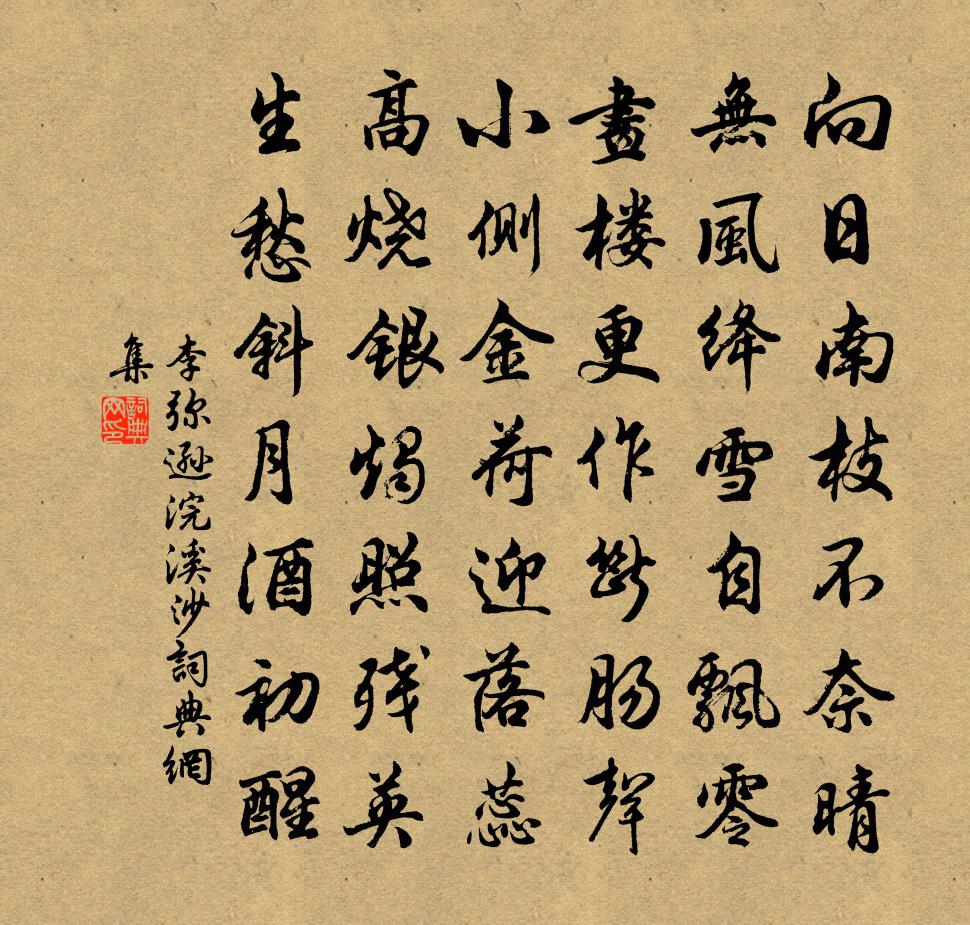 向日南枝不奈晴
無風絳雪自飄零
畫楼更作斷肠聲
小側金荷迎落蕊
高烧銀燭照残英
生愁斜月酒初醒
李弥遜浣溪沙詞典網
集
詞典
网印